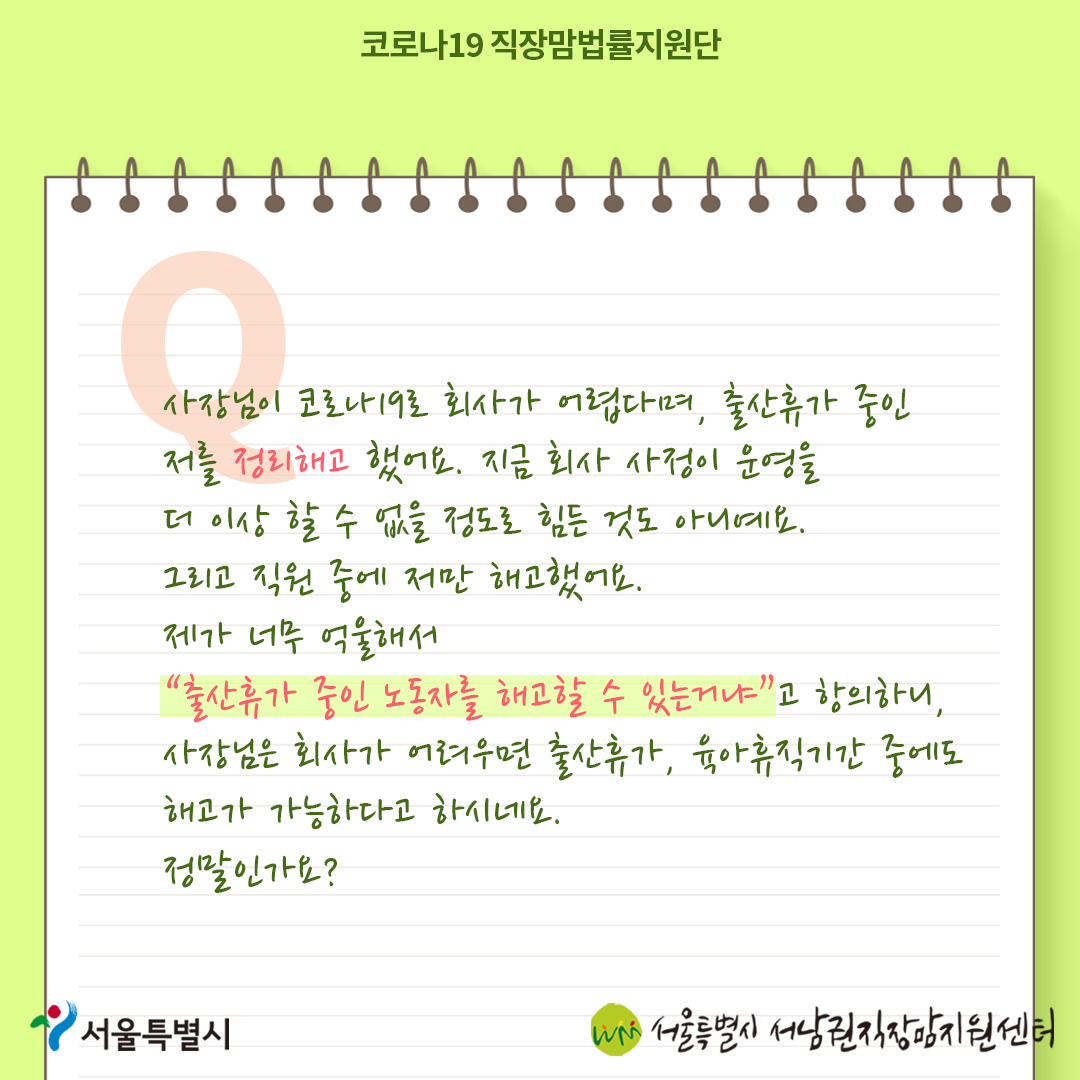 코로나19 직장맘법률지원단
Q
사장님이 코로나19로 회사가 어렵다며, 출산휴가 중인
저를 정리해고 했어요. 지금 회사 사정이 운영을
더 이상 할 수 없을 정도로 힘든 것도 아니예요.
그리고 직원 중에 저만 해고했어요.
제가 너무 억울해서
“출산휴가 중인 노동자를 해고할 수 있는거냐”고 항의하니,
사장님은 회사가 어려우면 출산휴가, 육아휴직기간 중에도
해고가 가능하다고 하시네요.
정말인가요?
서울특별시
WM 서울특별시 서남권직장맘지원센터